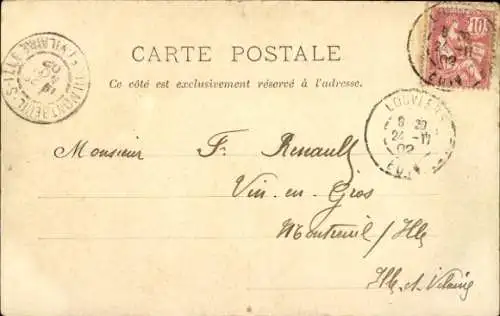 CARTE POSTALE
Ce côté est exclusivement réservé à l'adresse.
10
LOUVIERS
8 30
24 -11
02
EURE
Monsieur F. Renault
Vin en Gros
Montreuil / Ille
Ille et Vilaine